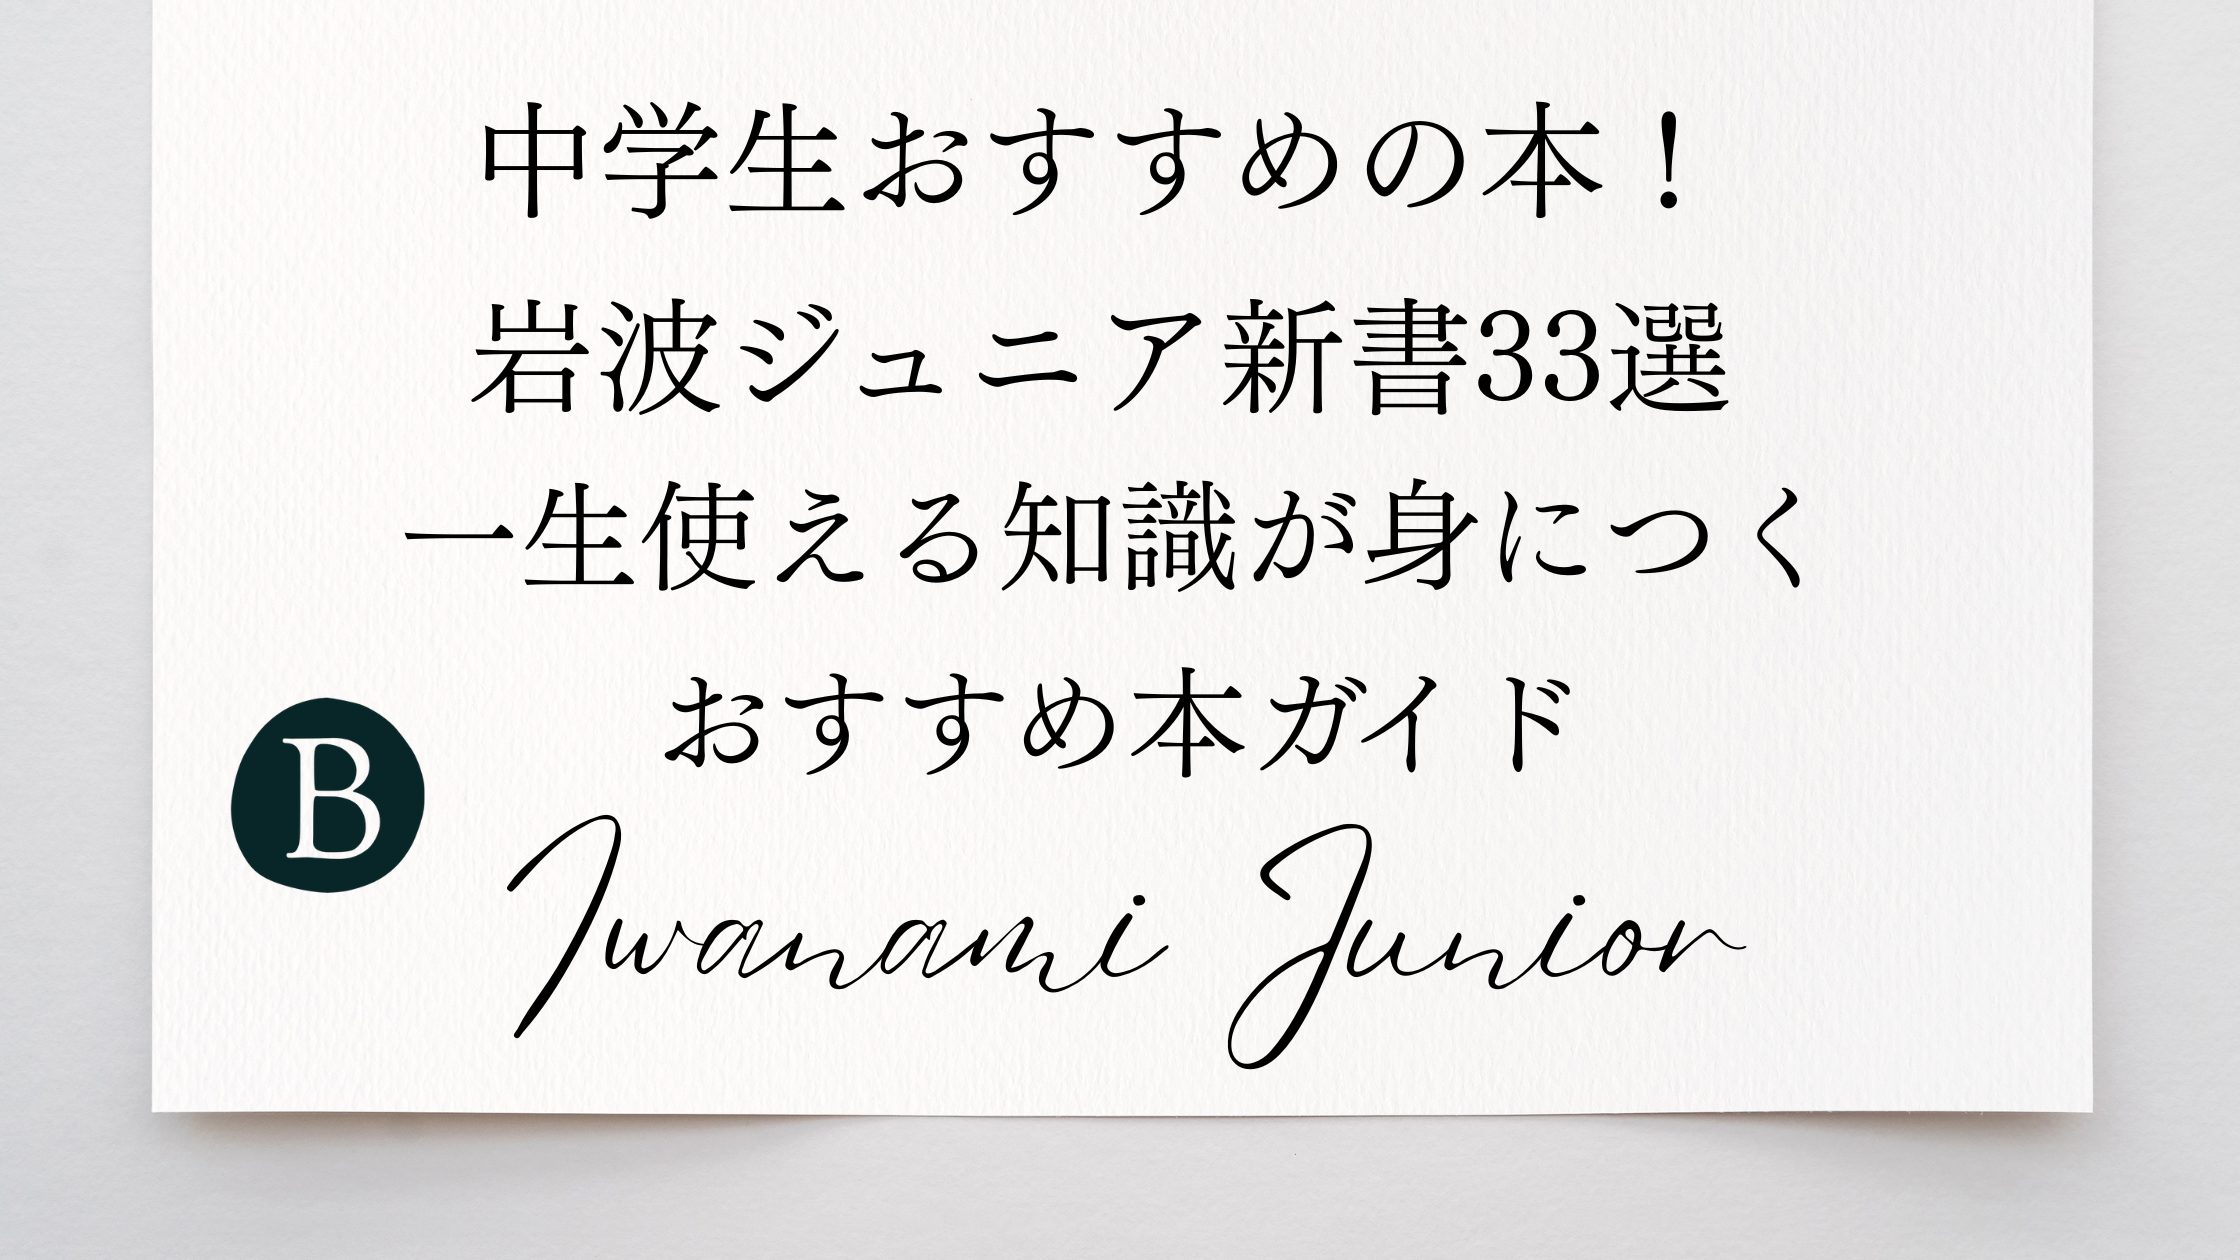 中学生おすすめの本！
岩波ジュニア新書33選
一生使える知識が身につく
おすすめ本ガイド
B
Iwanami Junior